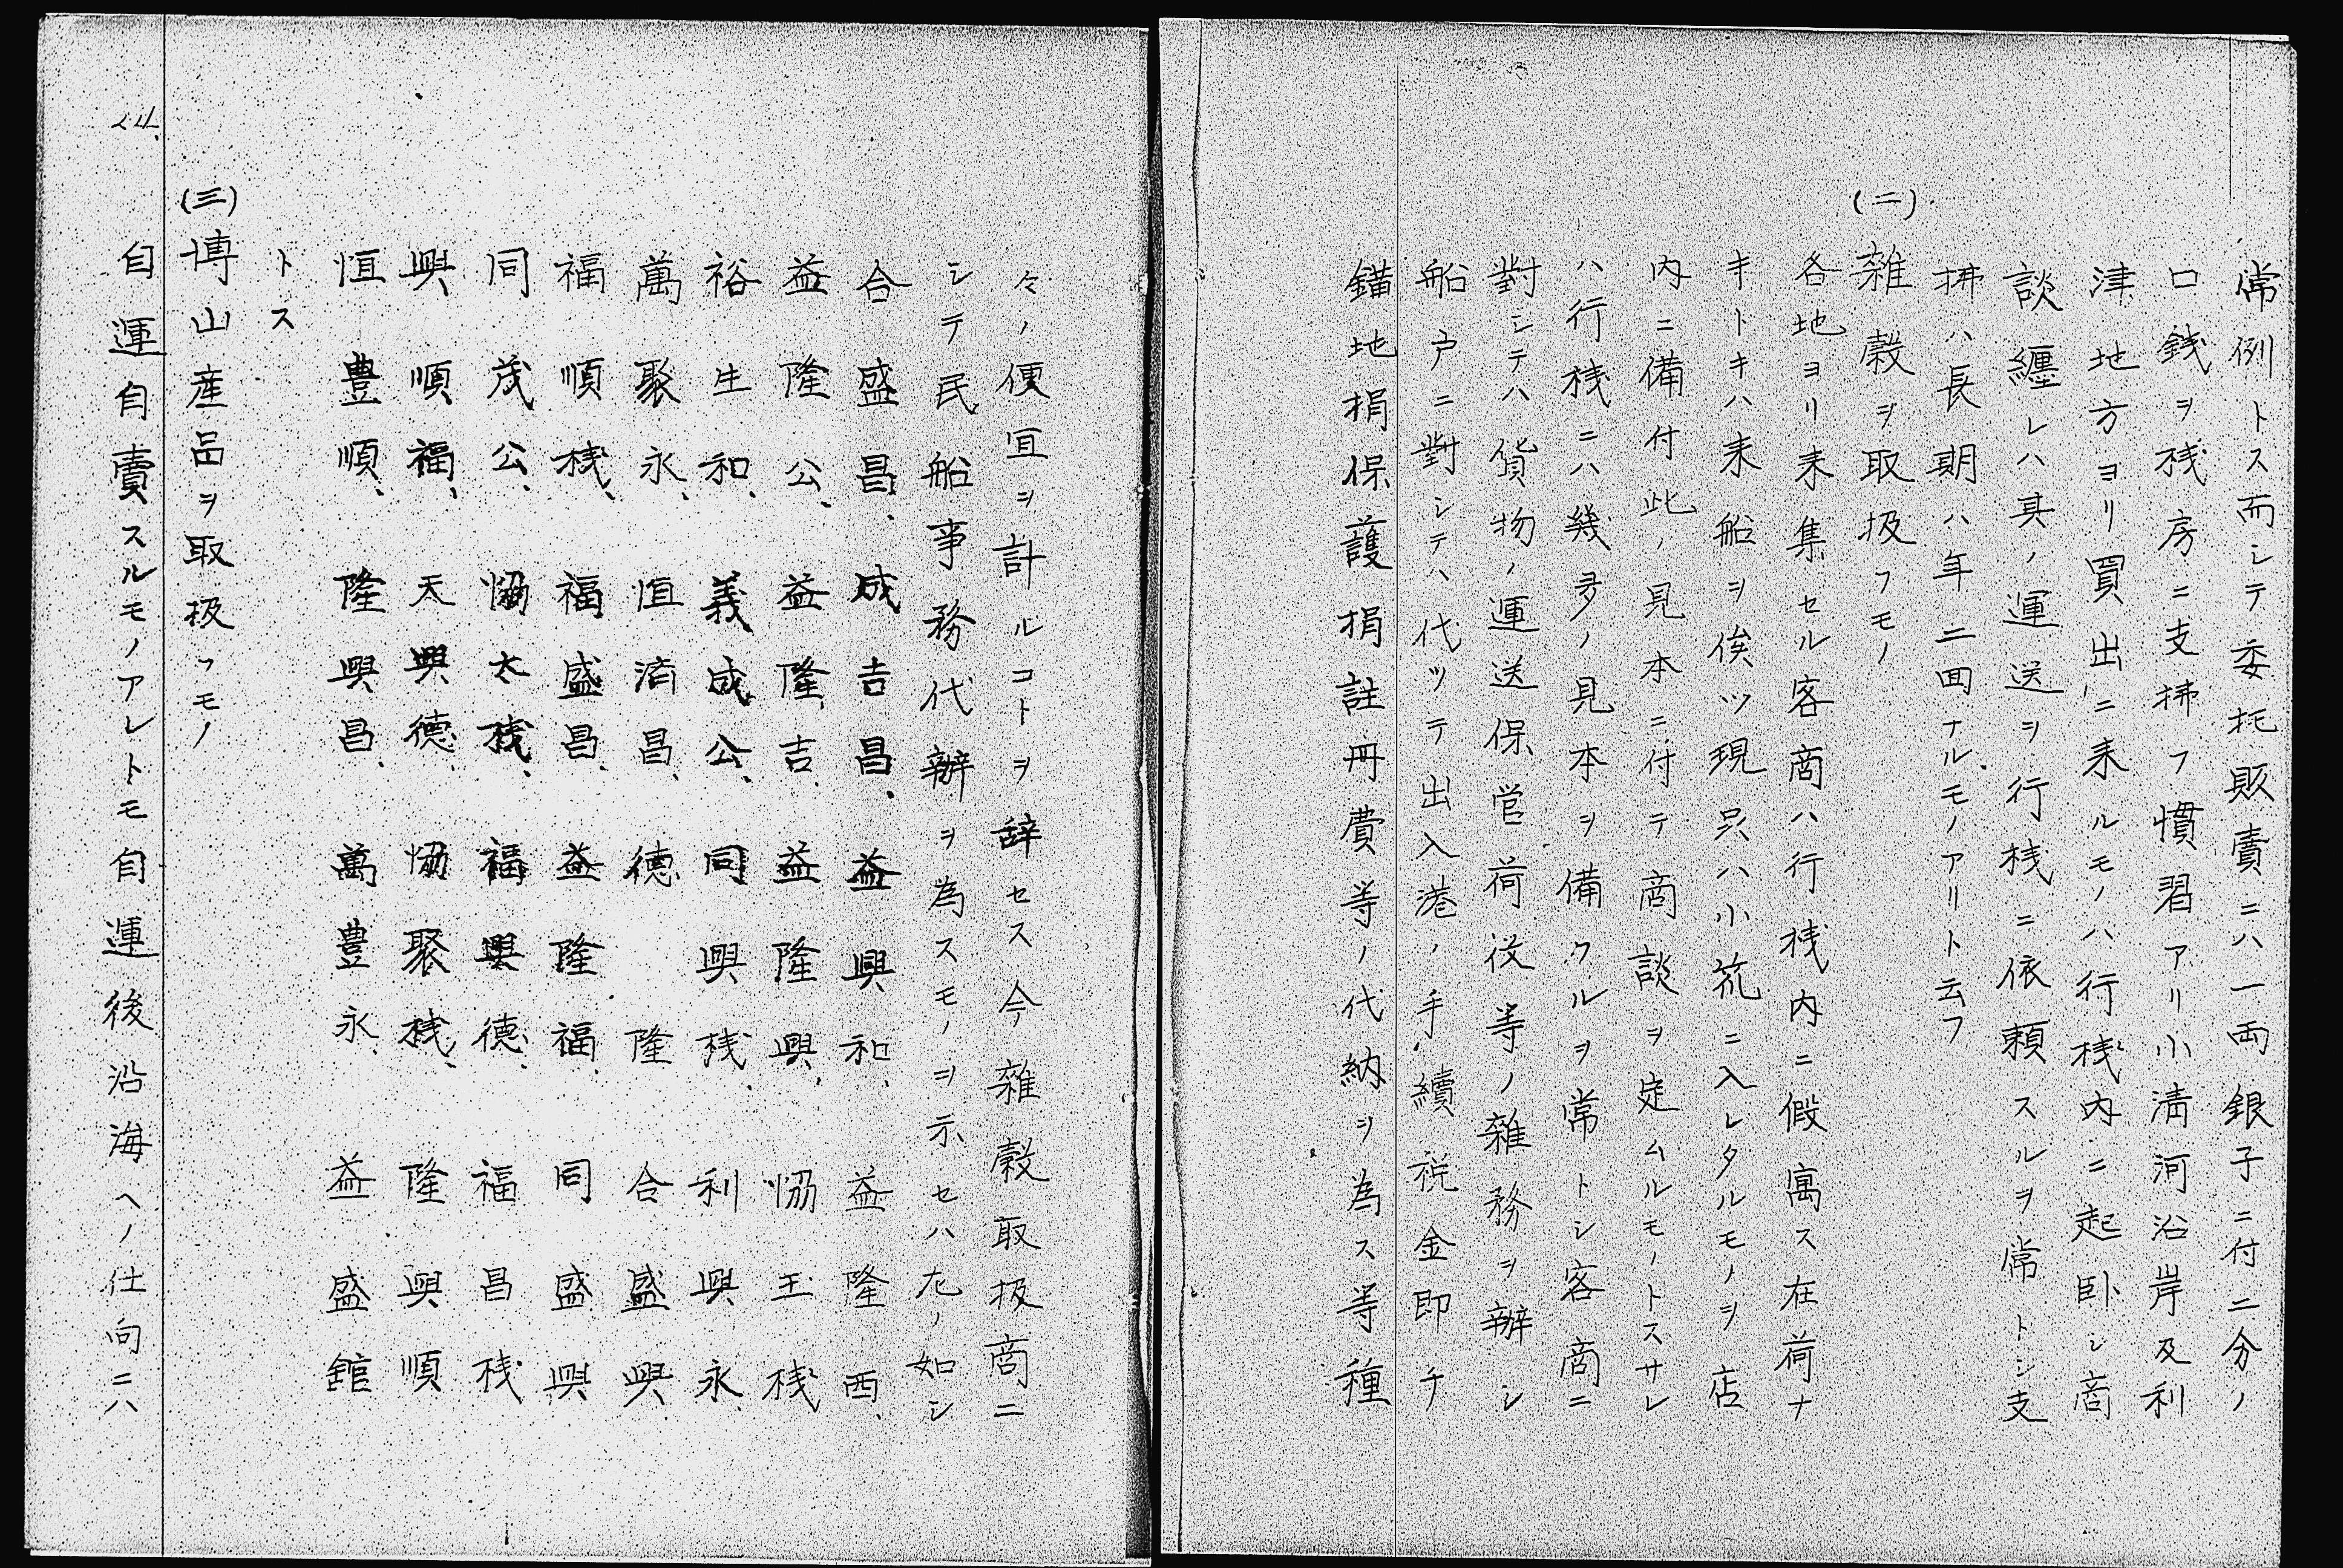 常例トス而シテ委托販賣ニハ一両銀子ニ付二分ノ
口銭ヲ桟房ニ支拂フ慣習アリ小清河沿岸及利
津地方ヨリ買出ニ来ルモノハ行桟内ニ起臥シ商
談纏レハ其ノ運送ヲ行桟ニ依頼スルヲ常トシ支
拂ハ長期ハ年二回ナルモノアリト云フ
(二)雑穀ヲ取扱フモノ
各地ヨリ来集セル客商ハ行桟内ニ假寓ス在荷ナ
キトキハ来船ヲ俟ツ現呉ハ小瓶ニ入レタルモノヲ店
内ニ備付此ノ見本ニ付テ商談ヲ定ムルモノトスサレ
ハ行桟ニハ幾多ノ見本ヲ備クルヲ常トシ客商ニ
對シテハ貨物ノ運送保管荷役等ノ雑務ヲ辨シ
船戸ニ對シテハ代ツテ出入港ノ手續税金即チ
錨地捐保護捐註冊費等ノ代納ヲ為ス等種
々ノ便宜ヲ計ルコトヲ辞セス今雑穀取扱商ニ
シテ民船事務代辦ヲ為スモノヲ示セハ左ノ如シ
合盛昌、成吉昌、益興和、益隆西、
益隆公、益隆吉、益隆興、恊王桟
裕生和、義成公、同興桟、利興永、
萬聚永、恒済昌、德隆合盛興
福順桟、福盛昌、益隆福、同盛興
同茂公、恊太桟、福興德、福昌桟
興順福、天興德、恊聚桟、隆興順
恒豊順、隆興昌、萬豊永、益盛館
トス
(三)博山産品ヲ取扱フモノ
自運自賣スルモノアレトモ自運後沿海ヘノ仕向ニハ
24.